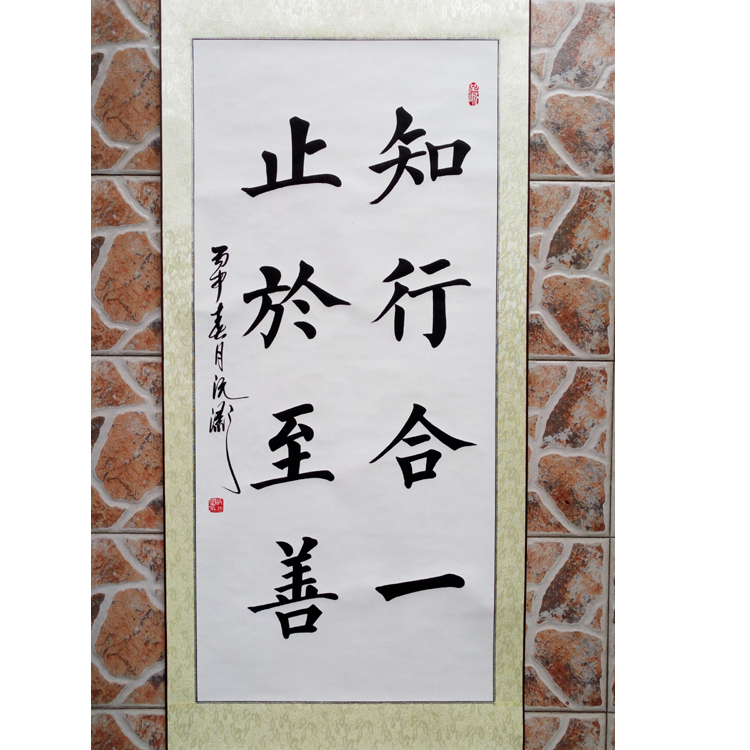 知行合一
止於至善
丙申春月沅瀟